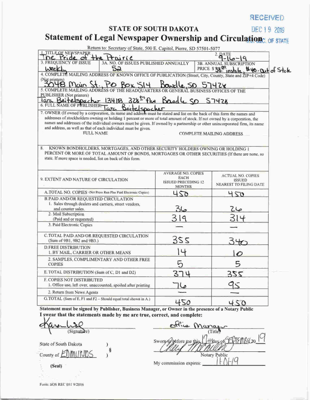 RECEIVED
DEC 19 2019
STATE OF SOUTH DAKOTA
Statement of Legal Newspaper Ownership and Circulation
Return to: Secretary of State, 500 E. Capitol, Pierre, SD 57501-5077
1. TITLE OF NEWSPAPER
2. DATE
The Pride of the Prairie
9-16-19
3. FREQUENCY OF ISSUE
3A. NO. OF ISSUES PUBLISHED ANNUALLY
3B. ANNUAL SUBSCRIPTION
PRICE
weekly
52
4. COMPLETE MAILING ADDRESS OF KNOWN OFFICE OF PUBLICATION (Street, City, County, State and ZIP+4 Code)
(Not printer)
Main St. PO Box 514 Bowdle SD 57428
5. COMPLETE MAILING ADDRESS OF THE HEADQUARTERS OR GENERAL BUSINESS OFFICES OF THE
PUBLISHER (Not printer)
Tara Beitelspacher Bowdle SD 57428
6. FULL NAME OF PUBLISHER
Tara Beitelspacher
7. OWNER (If owned by a corporation, its name and address must be stated and also on the back of this form the names and
addresses of stockholders owning or holding 1 percent or more of total amount of stock. If not owned by a corporation, the
names and addresses of the individual owners must be given. If owned by a partnership or other unincorporated firm, its name
and address, as well as that of each individual must be given.
FULL NAME
COMPLETE MAILING ADDRESS
8. KNOWN BONDHOLDERS, MORTGAGEES, AND OTHER SECURITY HOLDERS OWNING OR HOLDING 1
PERCENT OR MORE OF TOTAL AMOUNT OF BONDS, MORTGAGES OR OTHER SECURITIES (If there are none, so
state. If more space is needed, list on back of this form.
9. EXTENT AND NATURE OF CIRCULATION
AVERAGE NO. COPIES
EACH
ISSUED PRECEDING 12
MONTHS
ACTUAL NO. COPIES
ISSUED
NEAREST TO FILING DATE
A. TOTAL NO. COPIES (Net Press Run Plus Paid Electronic Copies)
450
450
B. PAID AND/OR REQUESTED CIRCULATION
1. Sales through dealers and carriers, street vendors,
and counter sales.
36
26
2. Mail Subscription
(Paid and or requested)
319
314
3. Paid Electronic Copies
—
—
C. TOTAL PAID AND/OR REQUESTED CIRCULATION
(Sum of 9B1, 9B2 and 9B3.)
355
340
D. FREE DISTRIBUTION
1. BY MAIL, CARRIER OR OTHER MEANS
14
10
2. SAMPLES, COMPLIMENTARY AND OTHER FREE
COPIES
5
5
E. TOTAL DISTRIBUTION (Sum of C, D1 and D2)
374
355
F. COPIES NOT DISTRIBUTED
1. Office use, left over, unaccounted, spoiled after printing
76
95
2. Return from News Agents
—
—
G. TOTAL (Sum of E, F1 and F2 - Should equal total shown in A.)
450
450
Statement must be signed by Publisher, Business Manager, or Owner in the presence of a Notary Public
I swear that the statements made by me are true, correct, and complete:
office manager
(Signature)
(Title)
State of South Dakota )
County of Edmunds )
Notary Public
(Seal)
My commission expires: